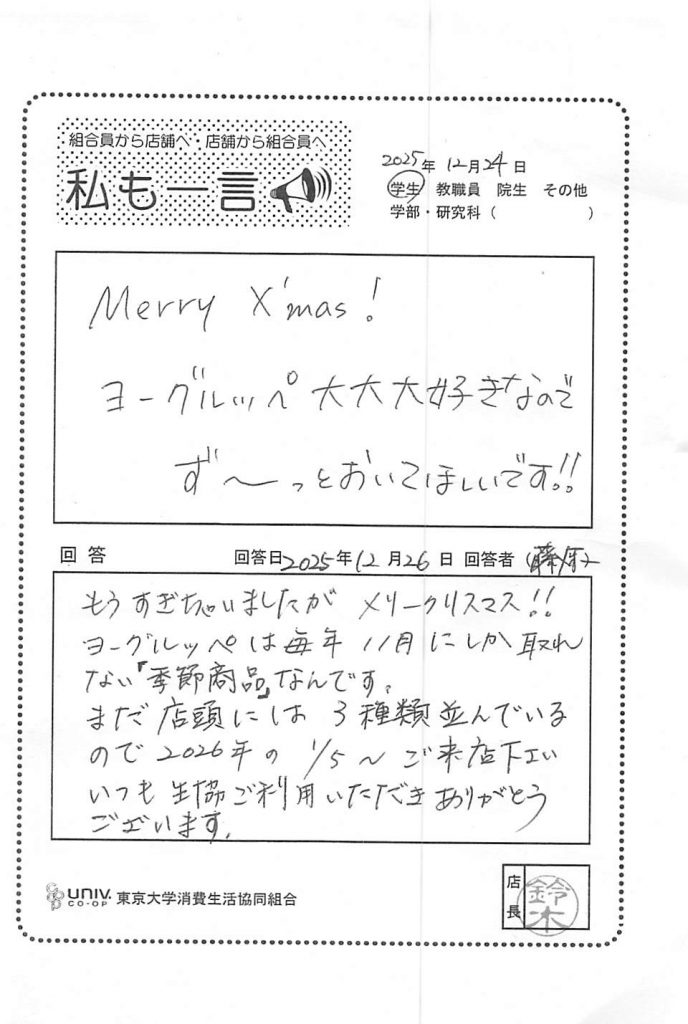 組合員から店舗へ・店舗から組合員へ
私も一言
2025年 12月24日
学生 教職員 院生 その他
学部・研究科（ ）
Merry X'mas!
ヨーグルッペ大大大好きなので
ず〜っとおいてほしいです!!
回答 回答日2025年12月26日 回答者
もうすぎちゃいましたが メリークリスマス!!
ヨーグルッペは毎年 11月にしか取れ
ない「季節商品」なんです。
まだ店頭には 3種類並んでいる
ので2026年の 1/5〜ご来店下さい
いつも生協ご利用いただきありがとう
ございます。
UNIV. CO-OP 東京大学消費生活協同組合
店長 鈴木